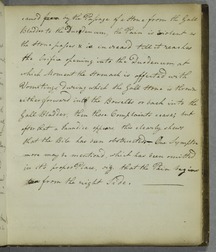 caused from by the Passage of a Stone from the Gall
Bladder to the Duodenum, the Pain is violent as
the Stone passes & is increased till it reaches
the Orifice opening into the Duodenum at
which Moment the Stomach is affected with
Vomitings during which the Gall Stone is thrown
either forward into the Bowells or back into the
Gall Bladder, then these Complaints ceases but
after that a Jaundice appears this clearly shews
that the Bile has been obstructed One Symptom
more may be mentioned which has been omitted
in its proper Place, viz that the Pain begins
from the right Side.